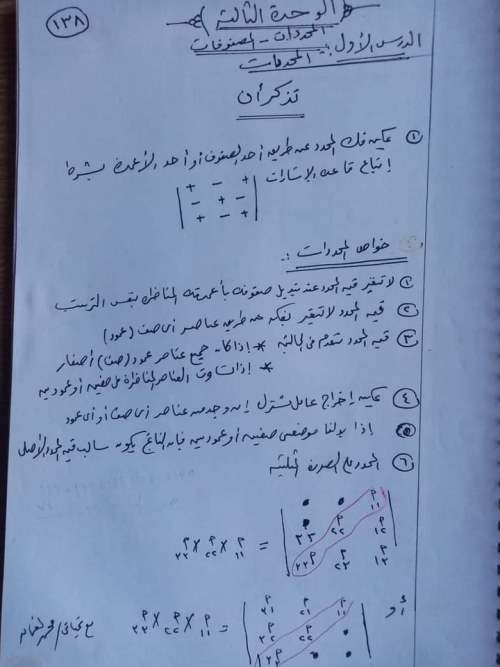 ١٣٨
الوحدة الثالثة
المحددات - المصفوفات
الدرس الأول: المحددات
تذكر أن
① يمكن فك المحدد عن طريق أحد الصفوف أو أحد الأعمدة بشرط
إتباع قاعدة الإشارات
+ - +
- + -
+ - +
خواص المحددات :.
① لا تتغير قيمة المحدد عند تبديل صفوفه بأعمدته المناظرة بنفس الترتيب
② قيمة المحدد لا تتغير بفكه عن طريق عناصر أى صف (عمود)
③ قيمة المحدد تنعدم فى الحالتين * إذا كان جميع عناصر عمود (صف) أصفار
* إذا تساوت العناصر المناظرة فى صفين أو عمودين
④ يمكن إخراج عامل مشترك إن وجد من عناصر أى صف أو أى عمود
إذا بدلنا موضعى صفين أو عمودين فإن الناتج يكون سالب قيمة المحدد الأصلى
⑥ المحدد على الصورة المثلثية
= ٢١١ × ٢٢٢ × ٢٣٣
أو
= ٢١١ × ٢٢٢ × ٢٣٣
مع تحياتى /